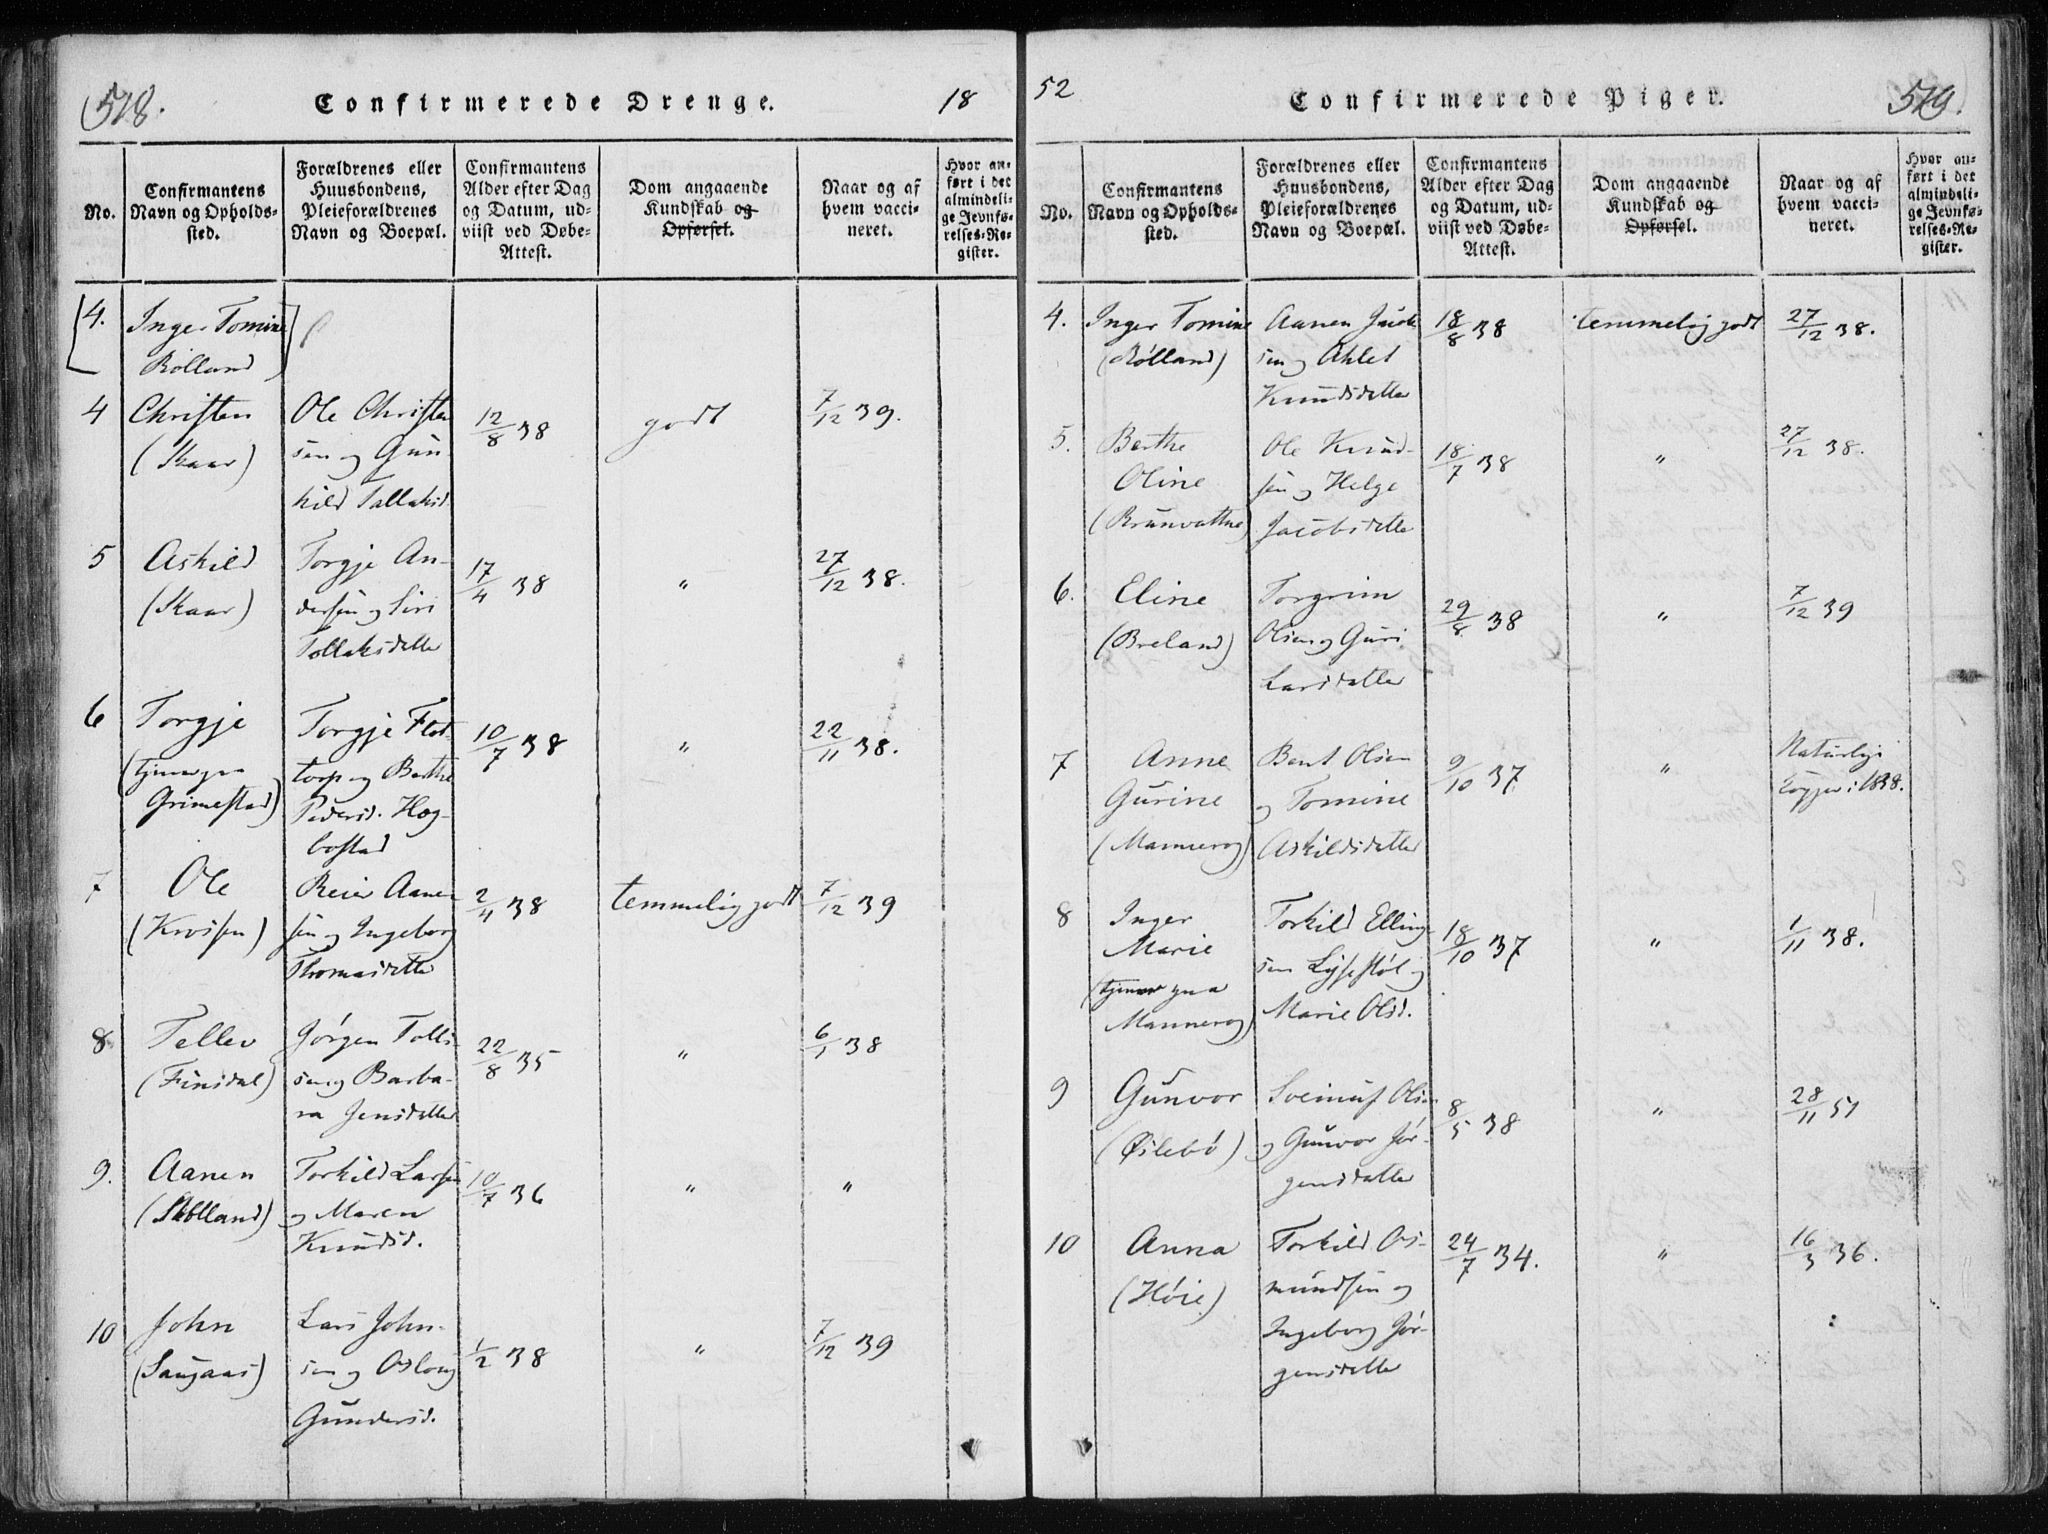 518.
Confirmerede Drenge.
18
No.
Confirmantens
Navn og Opholds-
sted.
Forældrenes eller
Huusbondens,
Pleieforældrenes
Navn og Boepæl.
Confirmantens
Alder efter Dag
og Datum, ud-
viist ved Døbe-
Attest.
Dom angaaende
Kundskab og
Opførsel.
Naar og af
hvem vacci-
neret.
Hvor an-
ført i det
almindeli-
ge Jevnfø-
relses-Re-
gister.
4.
Inger Tomine
Rølland
4
Christen
(Skaar)
Ole Christen
sen og Gun
hild Tallaksd.
12/8 38
godt
7/12 39.
5
Askild
(Skaar)
Torgje An-
dersen og Siri
Tollaksdatter
17/4 38
"
27/12 38.
6
Torgje
(tjener paa
Grimestad)
Torgje Flot-
torp og Berthe
Pedersd. Hæg-
bostad
10/7 38
"
22/11 38.
7
Ole
Reier Aanen
sen og Ingeborg
Thomasdatter
2/4 38
temmelig godt
7/12 39
8
Tellev
(Finsdal)
Jørgen Tolli-
sen og Barba-
ra Jensdatter
22/8 35
"
6/1 38
9.
Aanen
Torkild Larsen
og Maren
Knudsd.
10/7 36
"
"
10
John
Lars John-
sen og Oslaug
Gundersd.
1/2 38
"
7/12 39
52
Confirmerede Piger.
519.
No.
Confirmantens
Navn og Opholds-
sted.
Forældrenes eller
Huusbondens,
Pleieforældrenes
Navn og Boepæl.
Confirmantens
Alder efter Dag
og Datum, ud-
viist ved Døbe-
Attest.
Dom angaaende
Kundskab og
Opførsel.
Naar og af
hvem vacci-
neret.
Hvor an-
ført i det
almindeli-
ge Jevnfø-
relses-Re-
gister.
4.
Inger Tomine
(Rølland)
Aanen Jacob
sen og Ahlet
Knudsdatter
18/8 38
temmelig godt
27/12 38.
5.
Berthe
Oline
(Brunvattne)
Ole Knud-
sen og Helge
Jacobsdatter
18/7 38
"
27/12 38.
6.
Eline
(Breland)
Torgrim
Olsen og Guri
Larsdatter
29/8 38
"
7/12 39
7
Anne
Gurine
(Mannerog)
Bent Olsen
og Tomine
Askildsdatter
9/10 37
"
Naturlige
Kopper i 1838.
8
Inger
Marie
(tjener paa
Mannerog)
Torkild Elling
sen Lysestøl og
Marie Olsd.
18/10 37
"
1/11 38.
9
Gunvor
(Øslebø)
Sveinuf Olsen
og Gunvor Jør-
gensdatter
8/5 38
"
28/11 51
10
Anna
(Høie)
Torkild Os-
mundsen og
Ingeborg Jør-
gensdatter
24/7 34.
"
16/3 36.